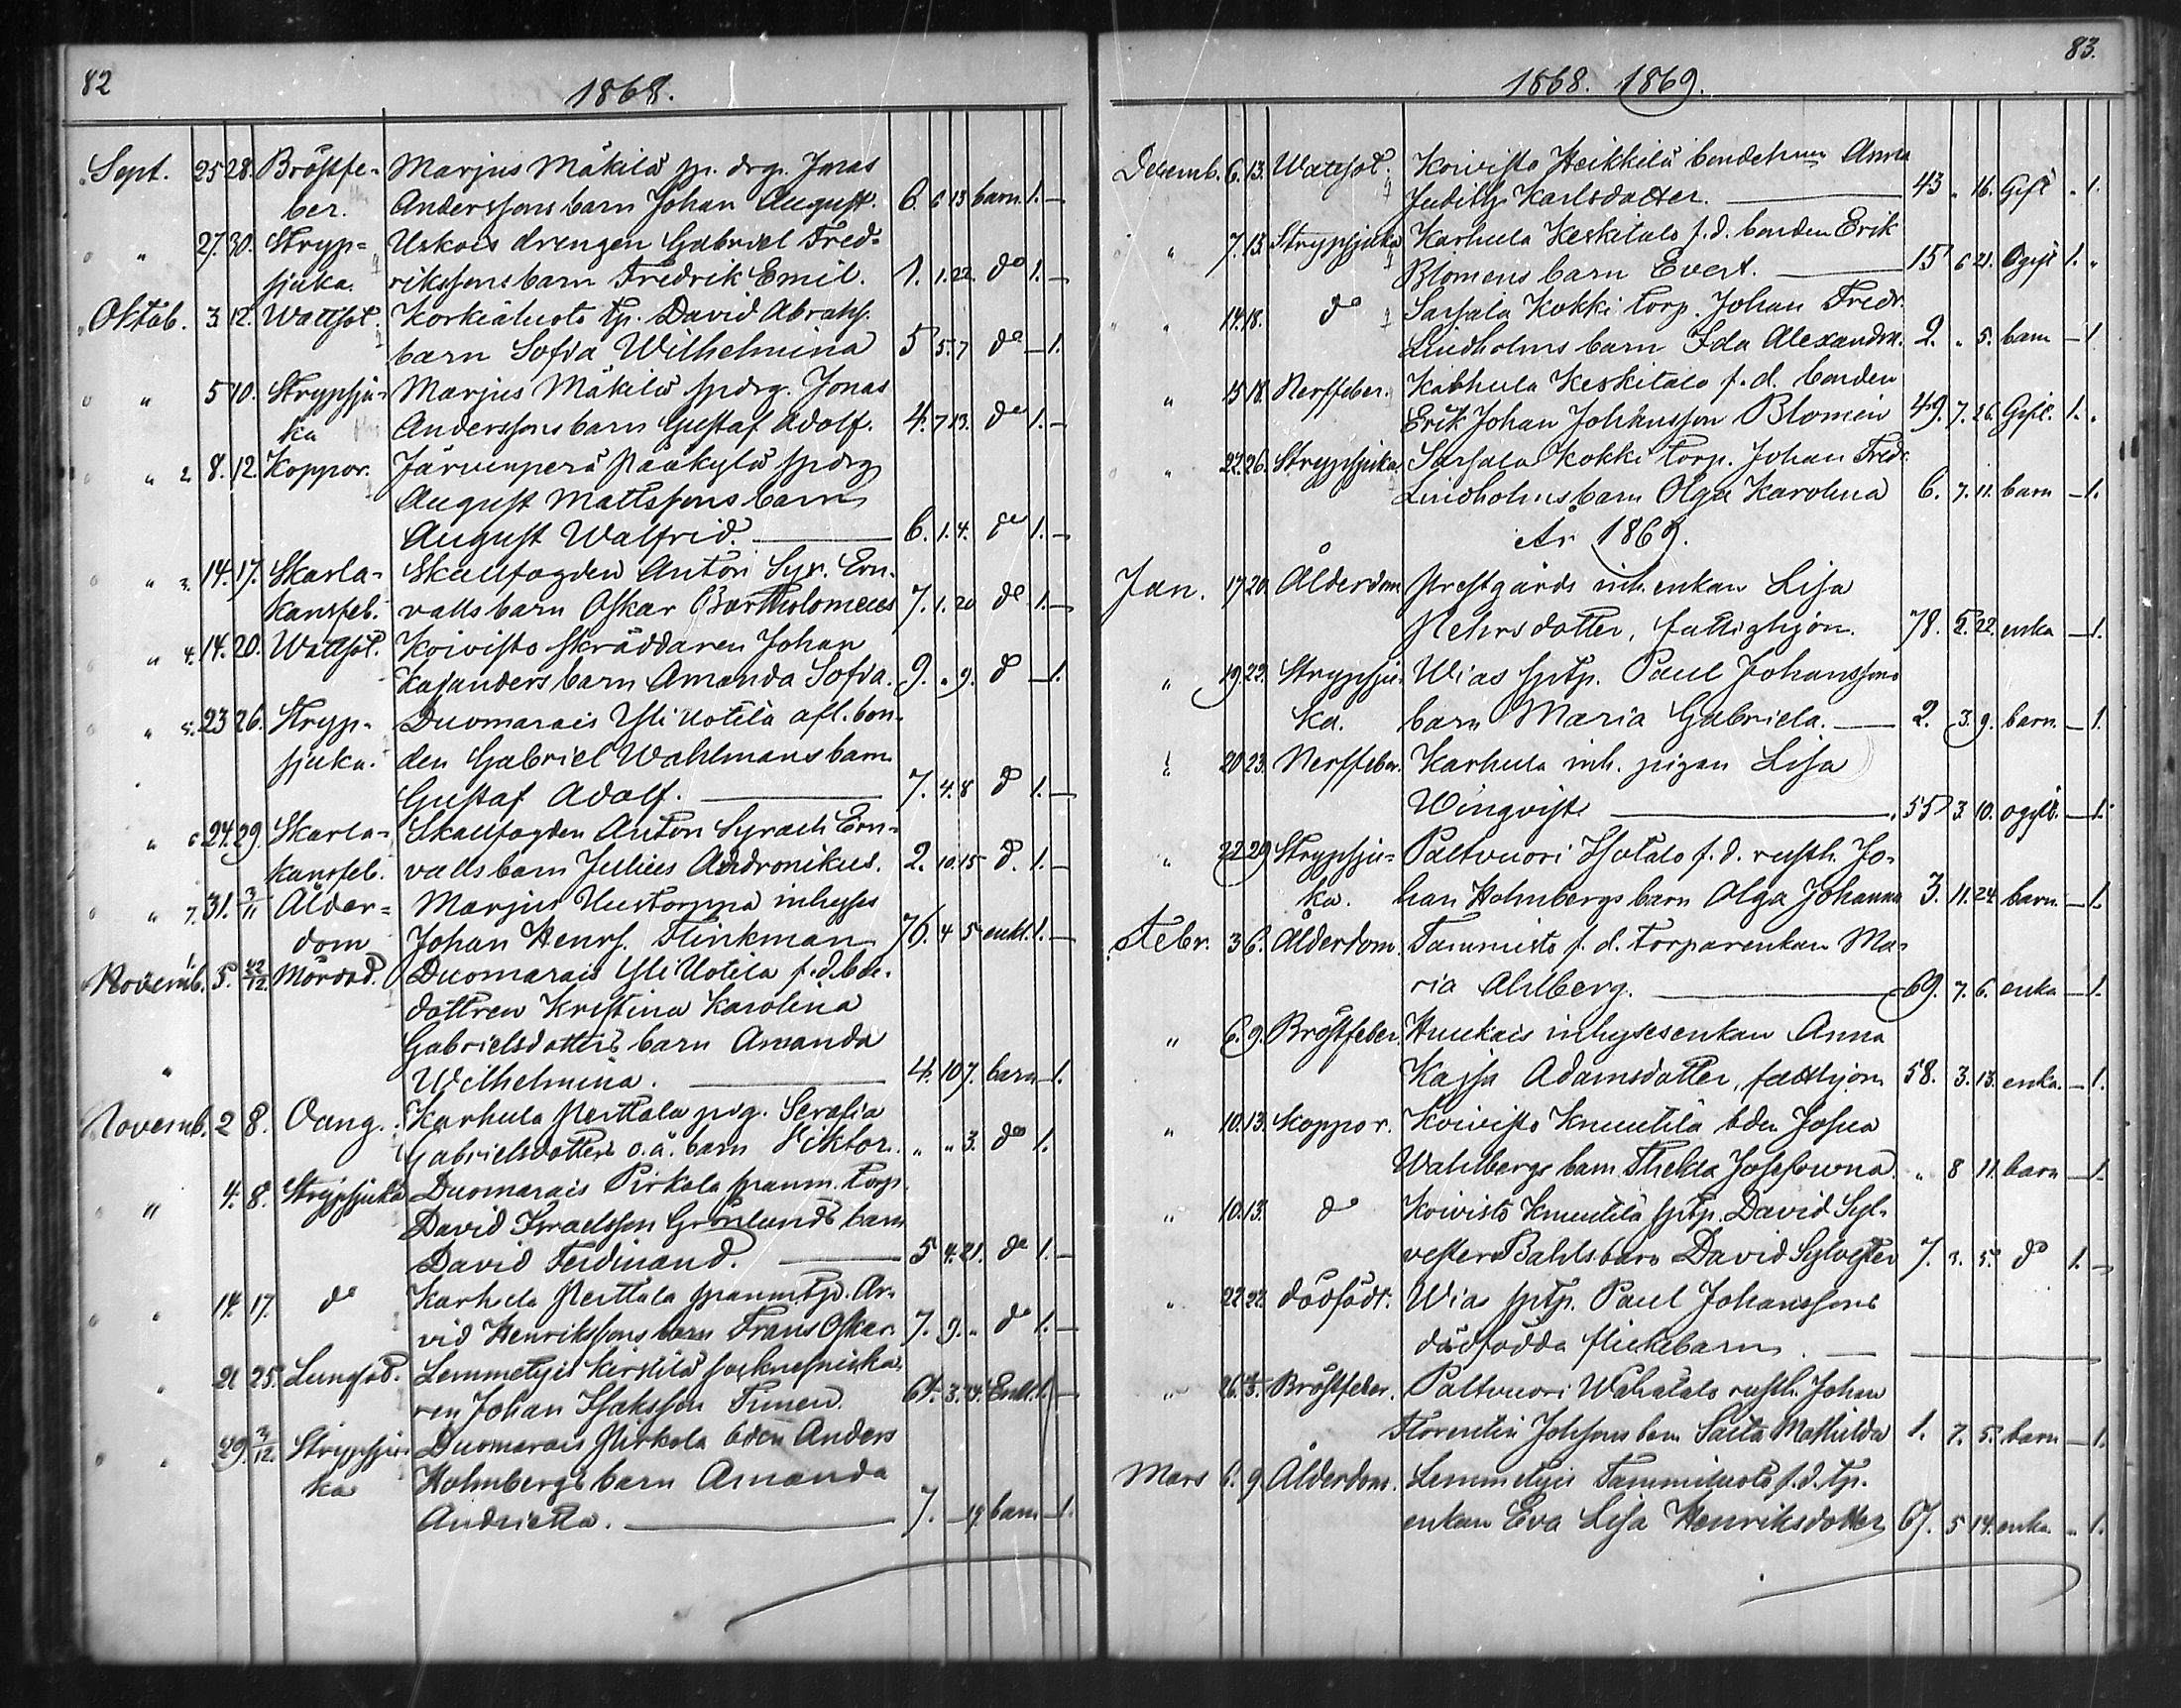 82
1868.
Sept. 25 28. Bröstfe- Marjus Mäkilä sp. drg. Jonas
ber. Anderssons barn Johan August. 6. 6 13 barn. 1. —
" 27. 30. Stryp- Uskois drengen Gabriel Fred-
sjuka. rikssons barn Fredrik Emil. 1. 1. 22. do 1. —
Oktob. 3. 12. Wattsot. Korkiäluoto tp. David Abrahs.
barn Sofia Wilhelmina 5 5. 7 do — 1.
" 5 10. Strypsju- Marjus Mäkilä spdrg. Jonas
ka Anderssons barn Gustaf Adolf. 4. 7 13. do 1. —
" 2 8. 12. Koppor. Järvenperä Pääkylä spdrg
August Mattssons barn
August Walfrid. 6. 1. 4. do 1. —
" 3. 14. 17. Skarla- Skallfogden Anton Syr. Ern-
kansfeb. valls barn Oskar Bartholomeus 7. 1. 20 do 1. —
" 4. 14. 20. Wattsot. Koivisto skräddaren Johan
Kajanders barn Amanda Sofia. 9. " 9. do — 1.
" 5. 23 26. Stryp- Duomarais Yli Uotila afl. bon-
sjuka. den Gabriel Wahlmans barn
Gustaf Adolf. 7. 4. 8 do 1. —
" 6 24. 29. Skarla- Skallfogden Anton Syrach Ern-
kansfeb. valls barn Julius Andronikus. 2. 10. 15 do. 1. —
" 7. 31. 3/11 Ålder- Marjus Uustorppa inhyses
dom Johan Henrs. Flinkman 76. 4 5 enkl. 1. —
Novemb. 5. 22/12. Mördad. Duomarais Yli Uotila f. d. bde-
dottren Kristina Karolina
Gabrielsdotters barn Amanda
" Wilhelmina. 4. 10 7. barn — 1.
Novemb. 2 8. Oang. Karhula Perttala pig. Serafia
Gabrielsdotters o. ä. barn Viktor. " " 3. do 1.
" 4. 8. Strypsjuka Duomarais Pirkola spanm. torp.
David Israelsson Grönlunds barn
David Ferdinand. 5 4. 21. do 1. —
" 14. 17. do Karhula Perttala spanmtp. Ar-
vid Henrikssons barn Frans Oskar. 7. 9. " do 1. —
" 21 25. Lungsot. Lemmetyis Kirstilä
ren Johan Isaksson Tunen. 64. 3. 24. Enkl. 1. —
" 29. 3/12. Strypsju- Duomarais Pirkola bden Anders
ka Holmbergs barn Amanda
Andrietta. 7. — 19. barn — 1.
83.
1868. 1869.
Decemb. 6. 13. Wattsot. Koivisto Heikkilä bondehu Anna
Judith Karlsdotter. 43 " 16. Gift " 1.
" 7. 13. Strypsjuka Karhula Keskitalo f. d. bonden Erik
Blomens barn Evert. 15 6 21. Ogift 1. "
" 14. 18. do Sarsala Kokki torp. Johan Fredr.
Lindholms barn Ida Alexandra. 2. " 5. barn — 1
" 15 18. Nerffeber. Karhula Keskitalo f. d. bonden
Erik Johan Johansson Blomén 49. 7. 26. Gift. 1. "
" 22. 26. Strypsjuka. Sarsala Kokki torp. Johan Fredr.
Lindholms barn Olga Karolina 6. 7. 11. barn — 1.
År 1869.
Jan. 17 20. Ålderdom Prestgårds inh. enkan Lisa
Pehrsdotter, fattighjon. 78. 5. 22. enka — 1.
" 19. 23. Strypsju- Wias sptp. Paul Johanssons
ka. barn Maria Gabriela. 2. 3. 9. barn. — 1.
" 20 23. Nerffeber. Karhula inh. pigan Lisa
Winqvist 55 3. 10. ogift. — 1.
" 22 29 Strypsju- Paltvuori Isotalo f. d. rusth. Jo-
ka. han Holmbergs barn Olga Johanna 3. 11. 24 barn. — 1.
Febr. 3 6. Ålderdom. Tammisto f. d. torparenkan Ma-
ria Ahlberg. 69. 7. 6. enka — 1.
" 6. 9. Bröstfeber. Hnukais inhysesenkan Anna
Kajsa Adamsdotter, fattihjon 58. 3. 13. enka. — 1.
" 10. 13. Koppor. Koivisto Knuutila bden Josua
Wahlbergs barn Thekla Josefowna. " 8 11. barn — 1.
" 10. 13. do Koivisto Knuutila sptp. David Syl-
vester Bahls barn David Sylvester 7. 3. 5. do 1. —
" 22 22. dödfödt. Wias sptp. Paul Johanssons
dödfödda flickebarn.
" 26. 4/3. Bröstfeber. Paltvuori Wähätalo rusth. Johan
Florentin Johssons barn Saita Mathilda 1. 7. 5. barn — 1.
Mars 6. 9. Ålderdom. Lemmetyis Tammiluoto f. d. tp.
enkan Eva Lisa Henriksdotter 67. 5 14. enka. " 1.